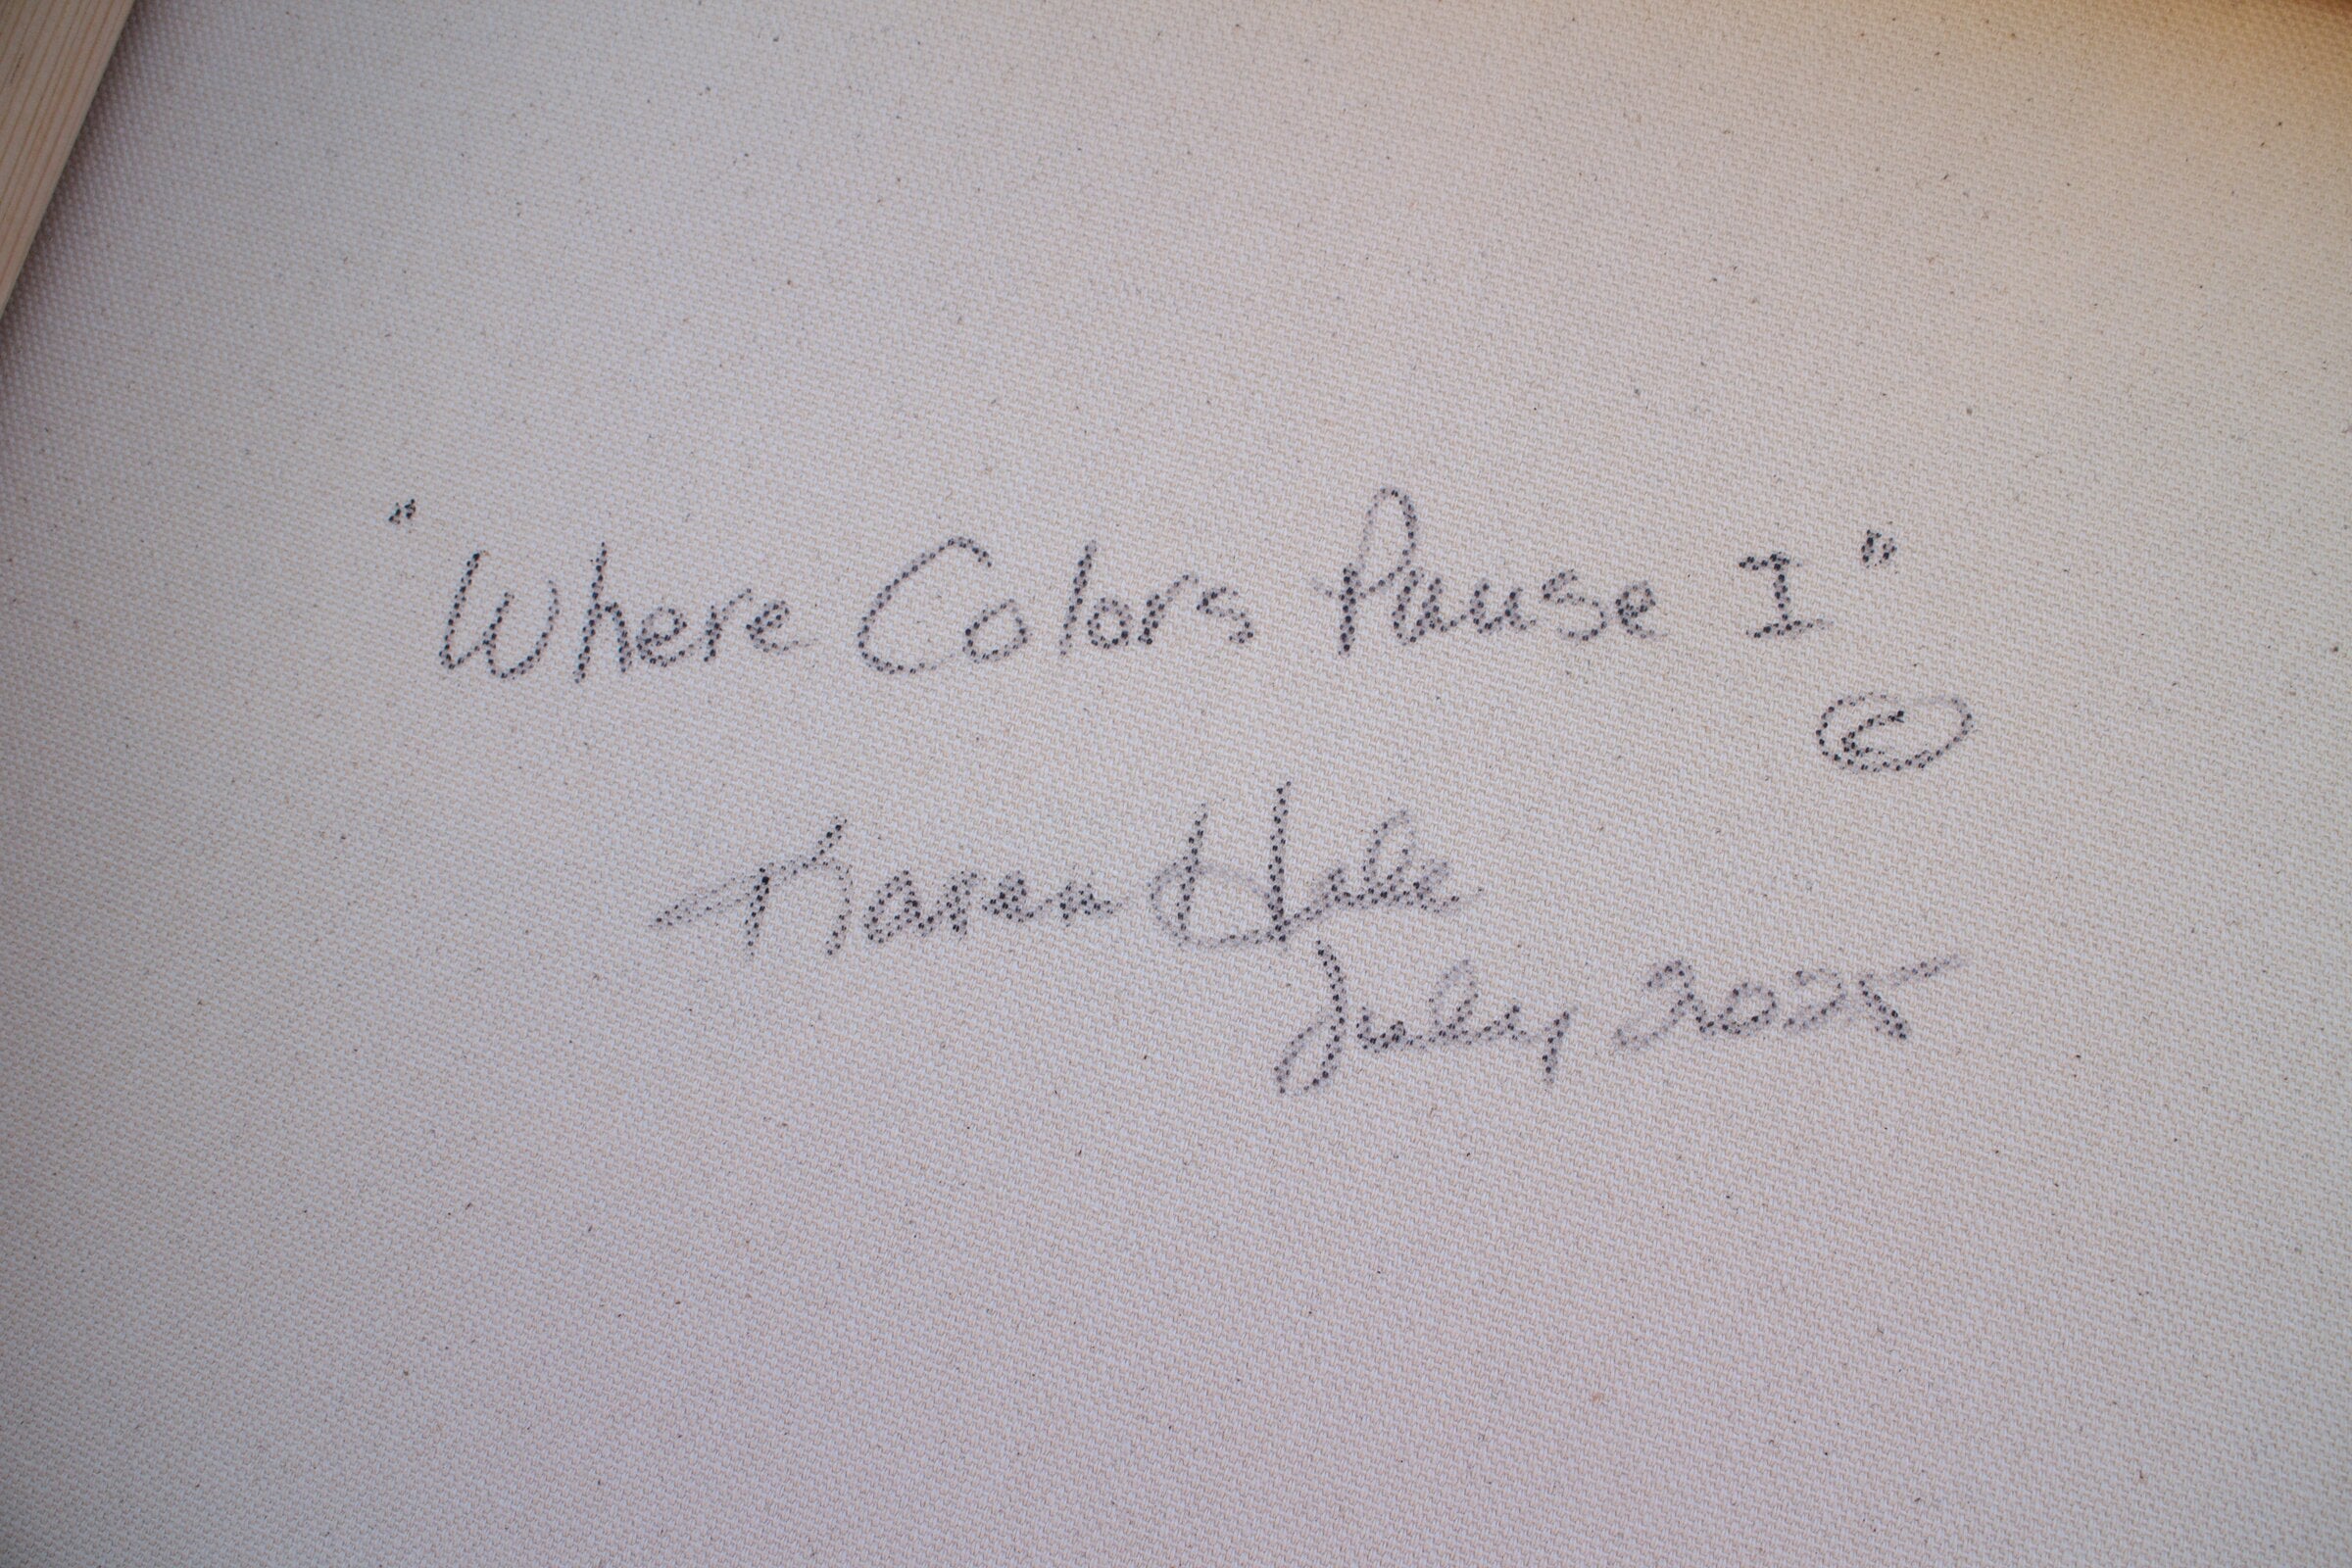 "Where Colors Pause I"
©
Karen Hale
July 2025